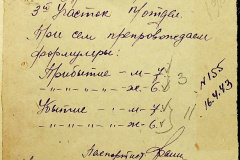 3й Участок 1 отдел.
При сем препровождаем
формуляры:
Прибытие - м - 7
" " " - ж - 6
Убытие - м - 7
" " " - ж - 6
3
11
N 155
16.4.43
Паспортист